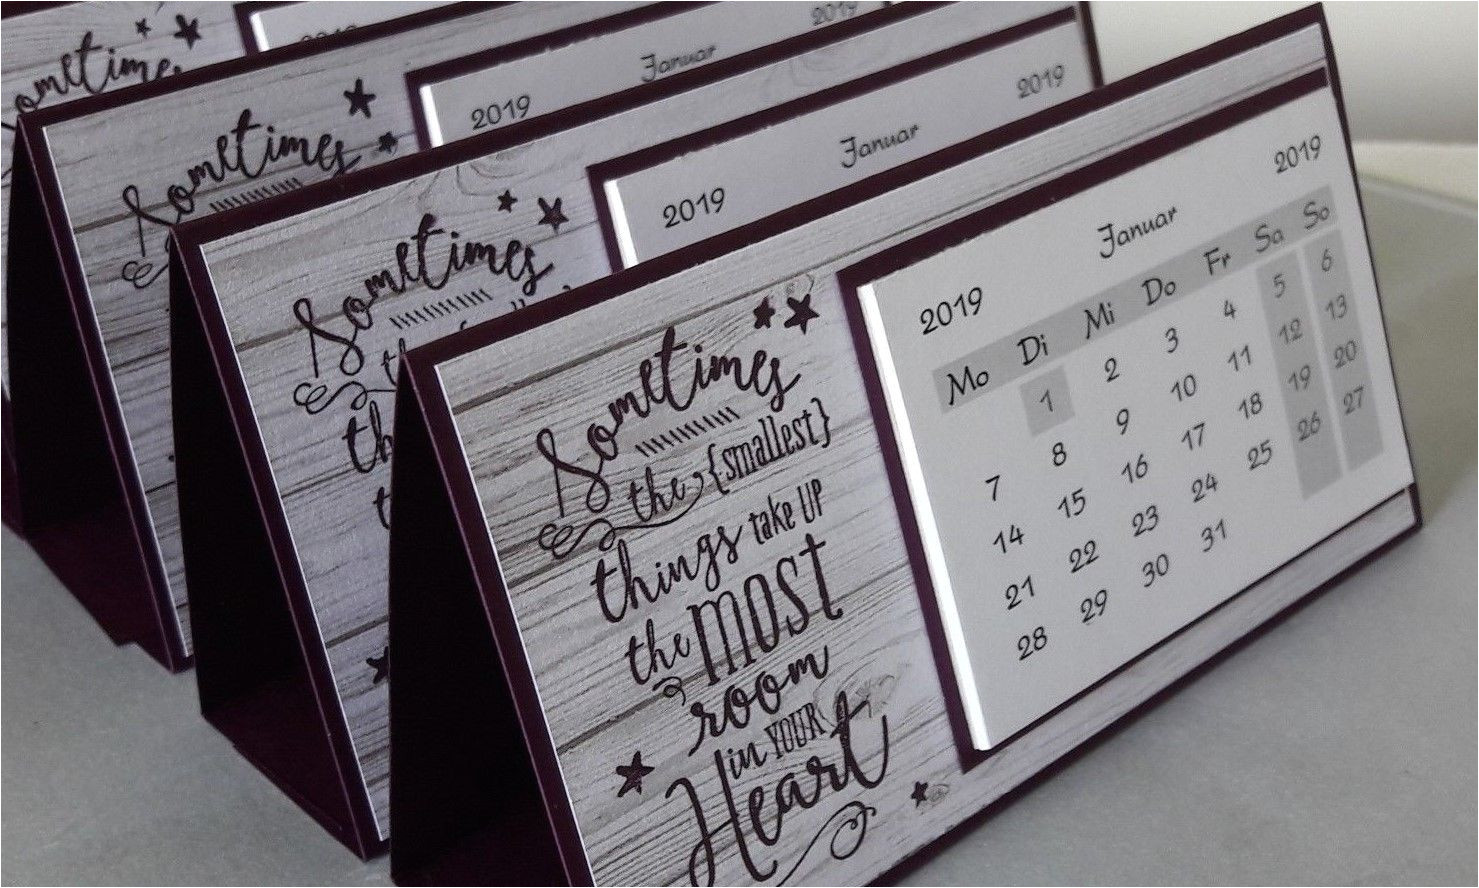 ometimes
2019 Januar 2019
Sometimes
2019 Januar 2019
Sometimes
th
2019 Januar 2019
Sometimes
the {smallest}
things take UP
the MOST
room
in YOUR
Heart
Mo Di Mi Do Fr Sa So
1 2 3 4 5 6
7 8 9 10 11 12 13
14 15 16 17 18 19 20
21 22 23 24 25 26 27
28 29 30 31